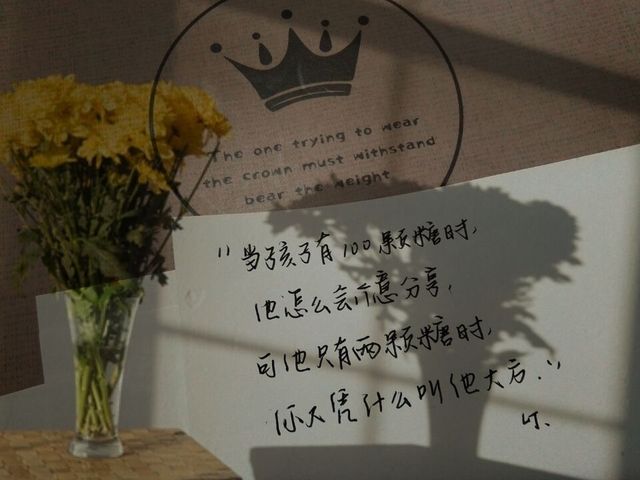 The one trying to wear
the crown must withstand
bear the weight
“当孩子有100颗糖时,
他怎么会介意分享,
可他只有两颗糖时,
你又凭什么叫他大方.”